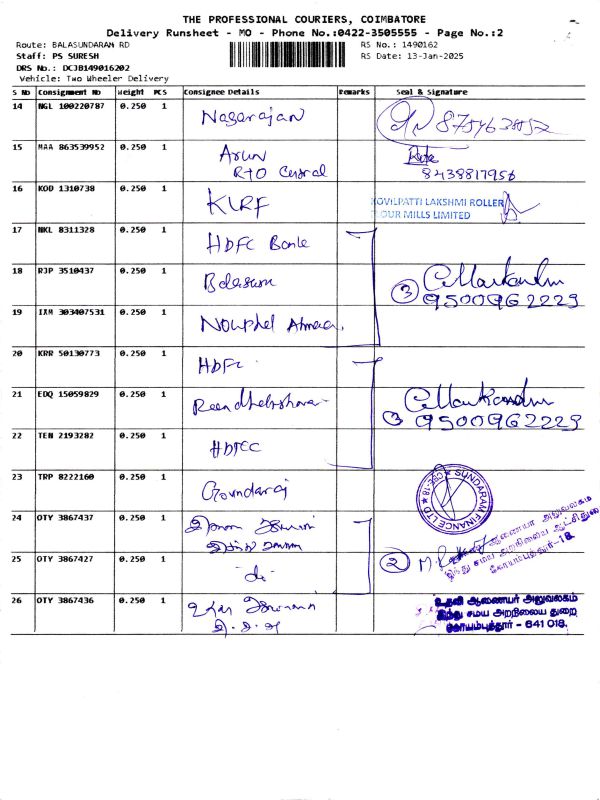 THE PROFESSIONAL COURIERS, COIMBATORE
Delivery Runsheet - MO - Phone No.:0422-3505555 - Page No.:2
Route: BALASUNDARAM RD
RS No.: 1490162
Staff: PS SURESH
RS Date: 13-Jan-2025
DRS No.: DCJB149016202
Vehicle: Two Wheeler Delivery
S No Consignment No Weight PCS Consignee Details Remarks Seal & Signature
14 NGL 100220787 0.250 1 Nagarajan
15 MAA 863539952 0.250 1 Arun
RTO Central 8438817956
16 KOD 1310738 0.250 1 KLRF
KOVILPATTI LAKSHMI ROLLER
FLOUR MILLS LIMITED
17 NKL 8311328 0.250 1 HDFC Bank
18 RJP 3510437 0.250 1 Balasum
3 9500962223
19 IXM 303407531 0.250 1 Nouphel Ahmed
20 KRR 50130773 0.250 1 HDFC
21 EDQ 15059829 0.250 1
3 9500962223
22 TEN 2193282 0.250 1 HDFCC
23 TRP 8222160 0.250 1 Govindaraj
SUNDARAM FINANCE LTD
CBE-18
24 OTY 3867437 0.250 1
25 OTY 3867427 0.250 1 -do-
2
இந்து சமய அறநிலைய ஆட்சிதுறை
கோயம்புத்தூர்-18.
26 OTY 3867436 0.250 1
உதவி ஆணையர் அலுவலகம்
இந்து சமய அறநிலைய துறை
கோயம்புத்தூர் - 641 018.